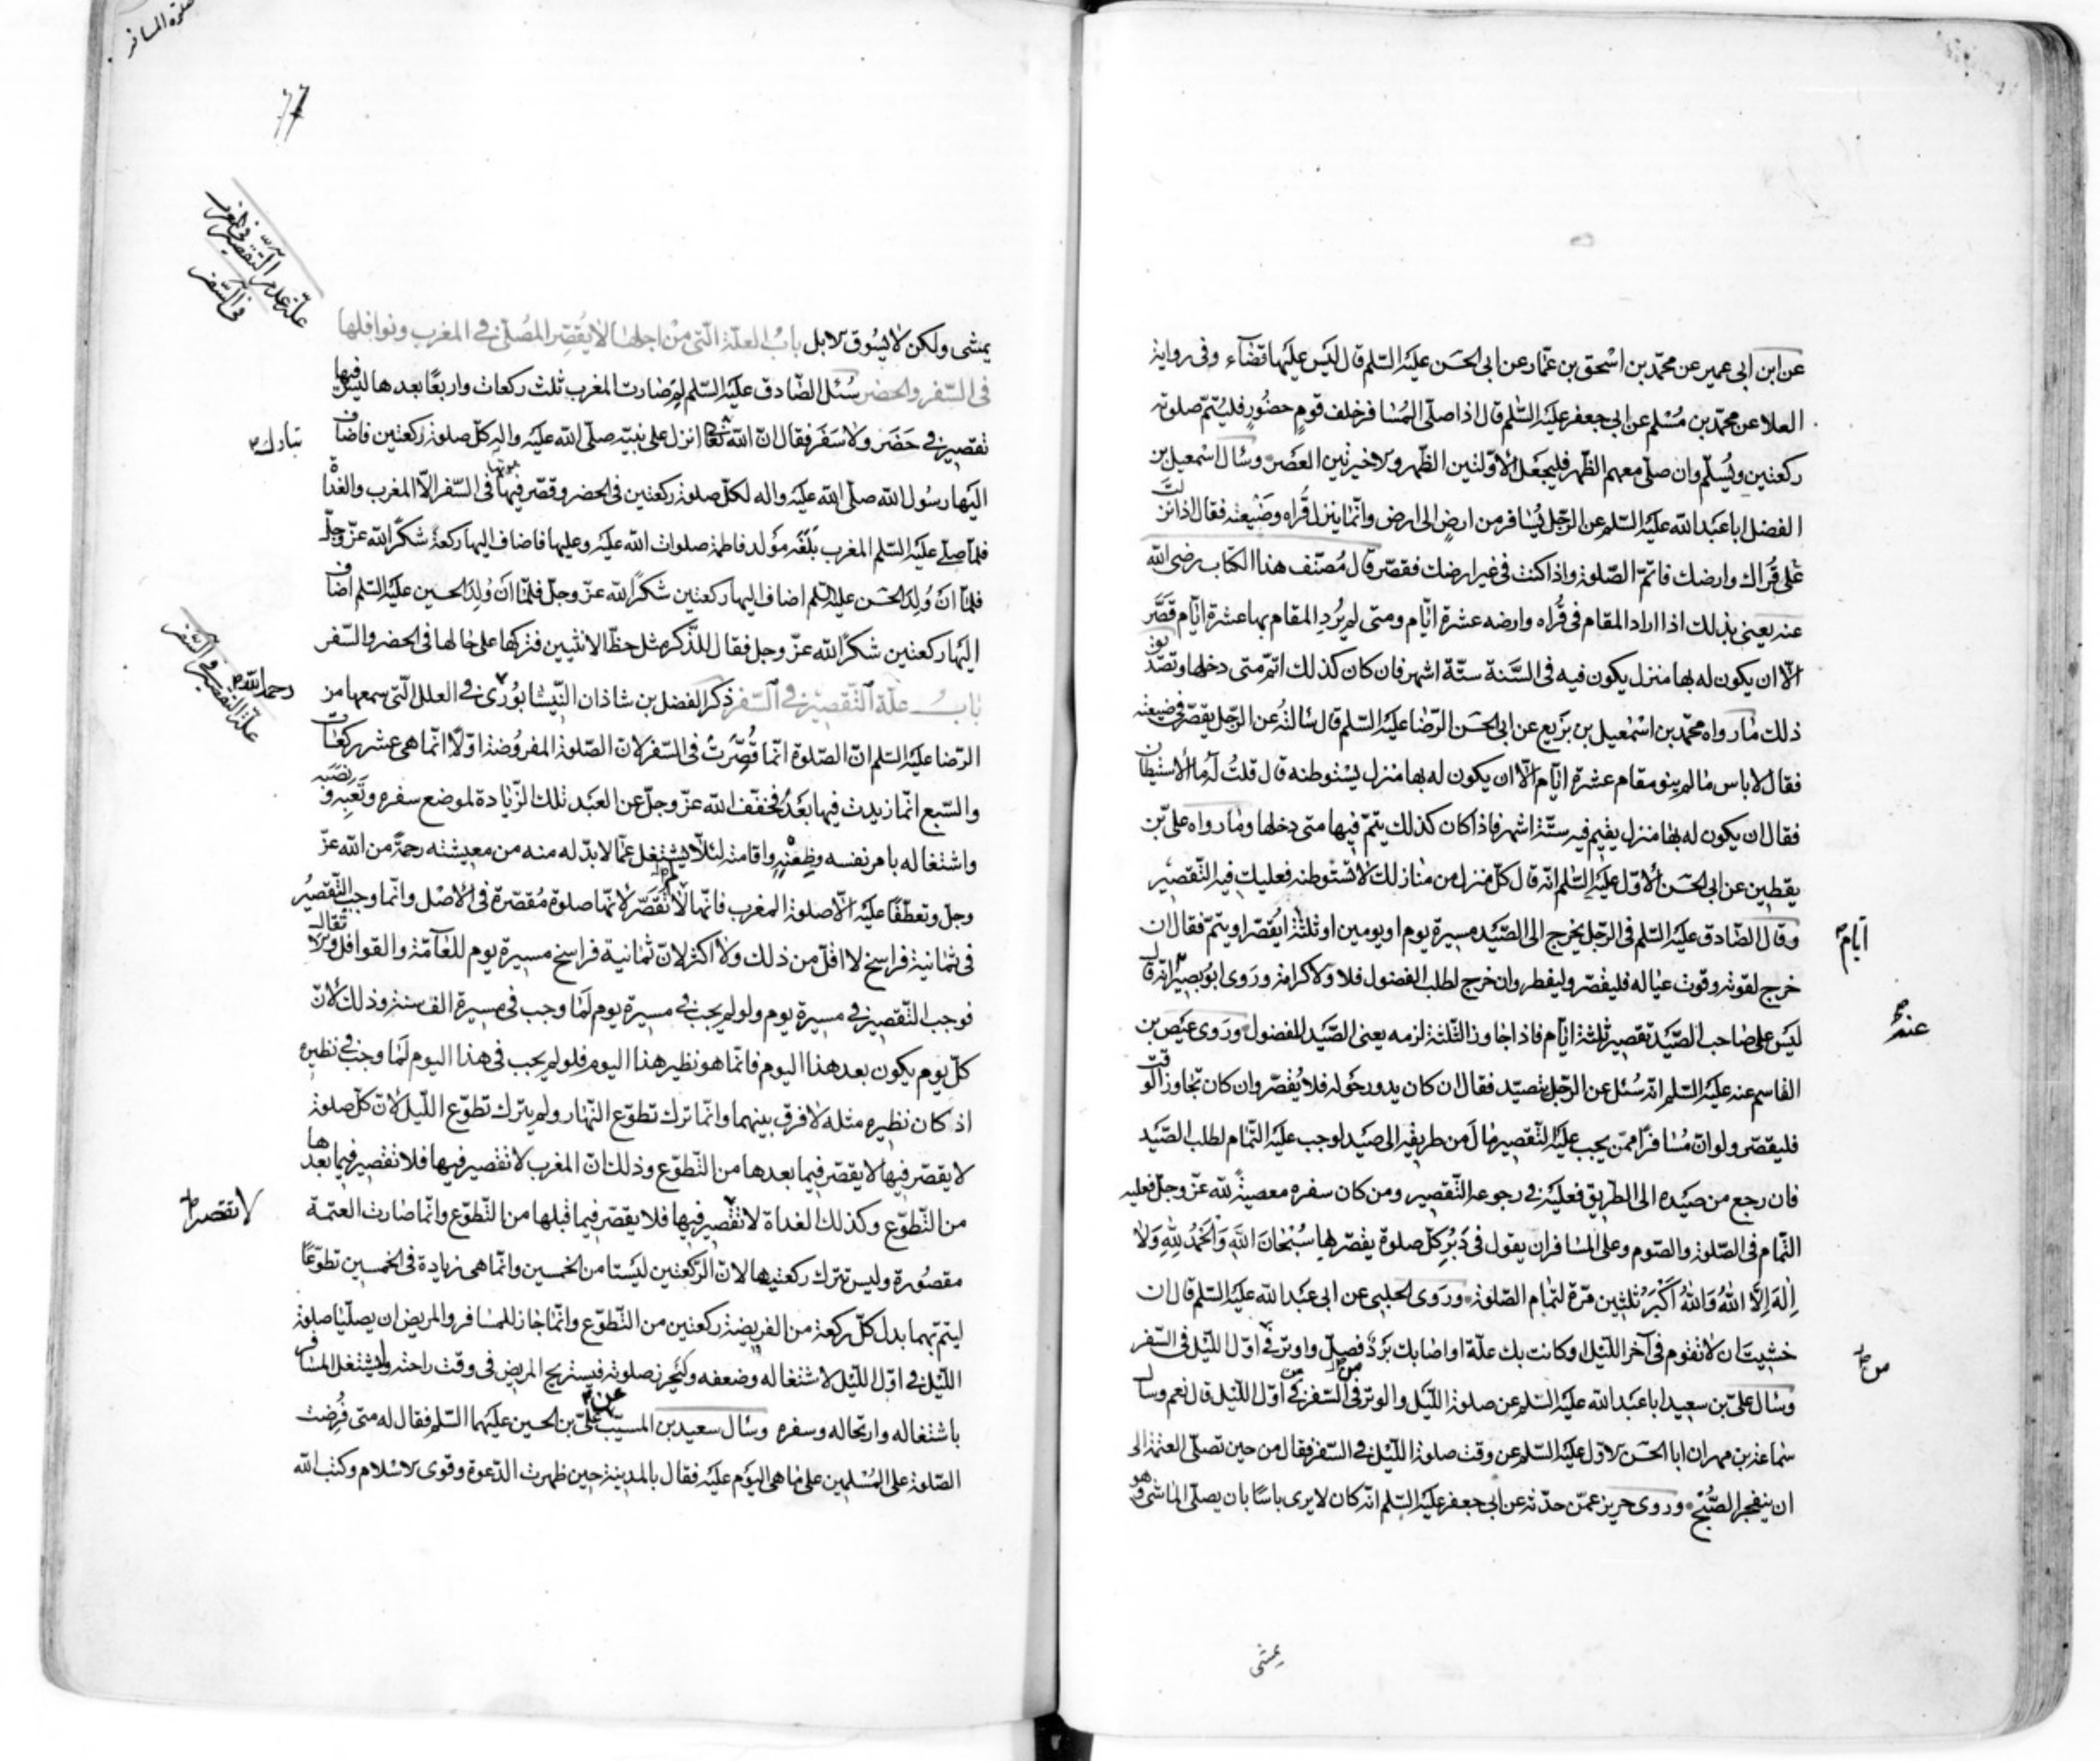 عن ابن ابى عمير عن محمّد بن اسْحق بن عمّار عن ابى الحسَن عليْه السّلم قال ليْس عليْها قضآء وفى رواية
العلا عن محمّد بن مُسْلم عن ابى جعفر عليْه السّلم قال اذا صلّى المُسَافر خلف قومٍ حضُورٍ فليُتمّ صلوته
ركعتين ويُسلّم وان صلّى معهم الظّهر فليجعَل الاوّلتين الظّهر والاخيرتين العَصَر وسَال اسْمعيل بن
الفضل ابا عبْد الله عليْه السّلم عن الرّجل يُسَافر من ارضٍ الى ارض وانّما ينزل قُراه وضَيْعته فقال اذا نزلت
عَلى قُراك وارضك فاتمّ الصّلوة واذا كنت فى غير ارضك فقصّر قال مُصنّف هذا الكتاب رضى الله
عنه يعنى بذلك اذا اراد المقام فى قُراه وارضه عشرة ايّام ومتى لم يُردِ المقام بها عشرة ايّام قَصَّر
الّا ان يكون له بها منزل يكون فيه فى السَّنة ستّة اشهر فان كان كذلك اتمّ متى دخلها وتصْديق
ذلك مَا رواه محمّد بن اسْمعيل بن بَزيع عن ابى الحسَن الرّضا عليْه السّلم قال سَالتهُ عن الرّجل يقصّر فى ضيعته
فقال لاباس مَا لم ينو مقام عشرة ايّام الّا ان يكون له بها منزل يسْتوطنه قال قلتُ له ما الاسْتيطان
فقال ان يكون له بها منزل يقيم فيه ستّة اشهر فاذا كان كذلك يتمّ فيها متى دخلها ومَا رواه علىّ بن
يقطين عن ابى الحسَن الاوّل عليْه السّلم انّه قال كلّ منزل من منازلك لا تسْتوطنه فعليك فيه التّقصيْر
وقال الصّادق عليْه السّلم فى الرّجل يخرج الى الصّيْد مسيرة يوم او يومين او ثلثة ايقصّر او يتمّ فقال ان
ايّام
خرج لقوته وقوت عيَاله فليقصّر وليفطر وان خرج لطلب الفضول فلا ولا كرامة وروى ابُو بصيْر انّه قال
ليْس على صَاحب الصّيْد تقصير ثلثة ايّام فاذا جاوز الثّلثة لزمه يعنى الصّيْد للفضول وروى عيْص بن
عنه
القاسم عنه عليْه السّلم انّه سُئل عن الرّجل يتصيّد فقال ان كان يدور حَوله فلا يُقصّر وان كان تجاوز الوقت
فليقصّر ولو انّ مُسَافرًا ممّن يجب عليْه التّقصير مَال من طريقه الى صَيْد لوجب عليْه التّمام لطلب الصّيْد
فان رجع من صَيْده الى الطّريق فعليْه فى رجوعه التّقصير ومن كان سفره معصيةً لله عزّ وجلّ فعليه
التّمام فى الصّلوة والصّوم وعلى المسَافر ان يقول فى دُبُر كلّ صلوة يقصّرها سُبْحَانَ اللهِ وَالحَمْدُ للهِ وَلا
اِلهَ اِلَّا اللهُ وَاللهُ اَكْبَرُ ثلثين مرّة لتمَام الصّلوة وروى الحلبى عن ابى عبْد الله عليْه السّلم قال ان
خشيْتَ ان لا تقوم فى آخر اللّيْل وكانت بك علّة او اصَابك بَرْدٌ فصلّ واوتر فى اوّل اللّيْل فى السّفر
وسَال علىّ بن سعيد ابا عبْد الله عليْه السّلم عن صلوة اللّيْل والوتر فى السّفر فى اوّل اللّيْل قال نعم وسال
سمَاعة بن مهران ابا الحسَن الاوّل عليْه السّلم عن وقت صلوة اللّيْل فى السّفر فقال من حين تصلّى العتمة الى
ان ينفجر الصّبْح وروى حريز عمّن حدّثه عن ابى جعفر عليْه السّلم انّه كان لا يرى باسًا بان يصلّى الماشى وهو
يمشى
يمشى ولكن لا يسُوق الابل بابُ العلّة الّتى من اجلهَا لا يُقصّر المُصلّى فى المغرب ونوافلها
علّة عدم التّقصير فى المغرب
فى السّفر
فى السّفر والحضر سُئل الصّادق عليْه السّلم لِمَ صَارت المغرب ثلث ركعات واربعًا بعدها ليْس فيها
تقصيْر فى حَضَر ولا سَفَر فقال انّ الله تعَا انزل على نبيّه صلّى الله عليْه واله كلّ صلوة ركعتين فاضاف
تبارك
اليْها رسُول الله صلّى الله عليْه واله لكلّ صلوة ركعتين فى الحضر وقصّر فيهَا فى السّفر الّا المغرب والغدَاة
فلمّا صلّى عليْه السّلم المغرب بَلَغَه مَولد فاطمة صلوات الله عليْه وعليها فاضاف اليها ركعة شكرًا لله عزّ وجلّ
فلمّا انَ وُلِدَ الحسَن عليْه السّلم اضاف اليها ركعتين شكرًا لله عزّ وجلّ فلمّا انَ وُلِدَ الحسين عليْه السّلم اضاف
اليْها ركعتين شكرًا لله عزّ وجل فقال للذّكر مثل حظّ الانثيين فتركها على حَالها فى الحضر والسّفر
بَابُ علّة التّقصيْر فى السّفر ذكر الفضل بن شاذان النّيْسَابُورى فى العلل الّتى سمعها من
رحمه الله
علّة التّقصير فى السّفر
الرّضا عليْه السّلم انّ الصّلوة انّما قُصّرتْ فى السّفر لانّ الصّلوة المفروُضة اوّلًا انّما هى عشر ركعات
والسّبع انّما زيدت فيها بَعْدُ فخفّف الله عزّ وجلّ عن العبْد تلك الزّيادة لموضع سفره وتَعَبه ونصَبه
واشتغاله بامر نفسه وظعْنه واقامته لئلّا يشتغل عمّا لابدّ له منه من معيشته رحمةً من الله عزّ
وجلّ وتعطّفًا عليْه الّا صلوة المغرب فانّها لا تُقصّر لانّها صلوة مُقصّرة فى الاصْل وانّما وجب التّقصيرُ
فى ثمانية فراسخ لا اقلّ من ذلك ولا اكثر لانّ ثمانية فراسخ مسيرة يوم للعامّة والقوافل والاثقال
فوجب التّقصير فى مسيرة يوم ولو لم يجب فى مسيرة يوم لمَا وجب فى مسيرة الف سنة وذلك لانّ
كلّ يوم يكون بعد هذا اليوم فانّما هو نظير هذا اليوم فلو لم يجب فى هذا اليوم لمَا وجب فى نظيره
اذ كان نظيره مثله لا فرق بينهما وانّما ترك تطوّع النّهار ولم يترك تطوّع اللّيل لانّ كلّ صلوة
لا يقصّر فيها لا يقصّر فيما بعدها من التّطوّع وذلك انّ المغرب لا تقصير فيها فلا تقصير فيما بعدها
من التّطوّع وكذلك الغداة لا تقْصير فيها فلا يقصّر فيما قبلها من التّطوّع وانّما صَارت العتمة
لا تقصير
مقصُورة وليس تترك ركعتيها لانّ الرّكعتين ليْستا من الخمسين وانّما هى زيادة فى الخمسين تطوّعًا
ليتمّ بهما بدل كلّ ركعة من الفريضة ركعتين من التّطوّع وانّما جَاز للمسَافر والمريض ان يصلّيَا صلوة
اللّيْل فى اوّل اللّيْل لاشتغاله وضعفه وليُحرز صلوته فيستريح المريض فى وقت راحته وليشتغل المسافر
باشتغاله وارتحاله وسفره وسَال سعيد بن المسيّب علىّ بن الحسين عليْهما السّلم فقال له متى فُرضت
الصّلوة على المُسْلمين على مَا هى اليَوْم عليْه فقال بالمدينة حين ظهرت الدّعوة وقوى الاسْلام وكتب الله